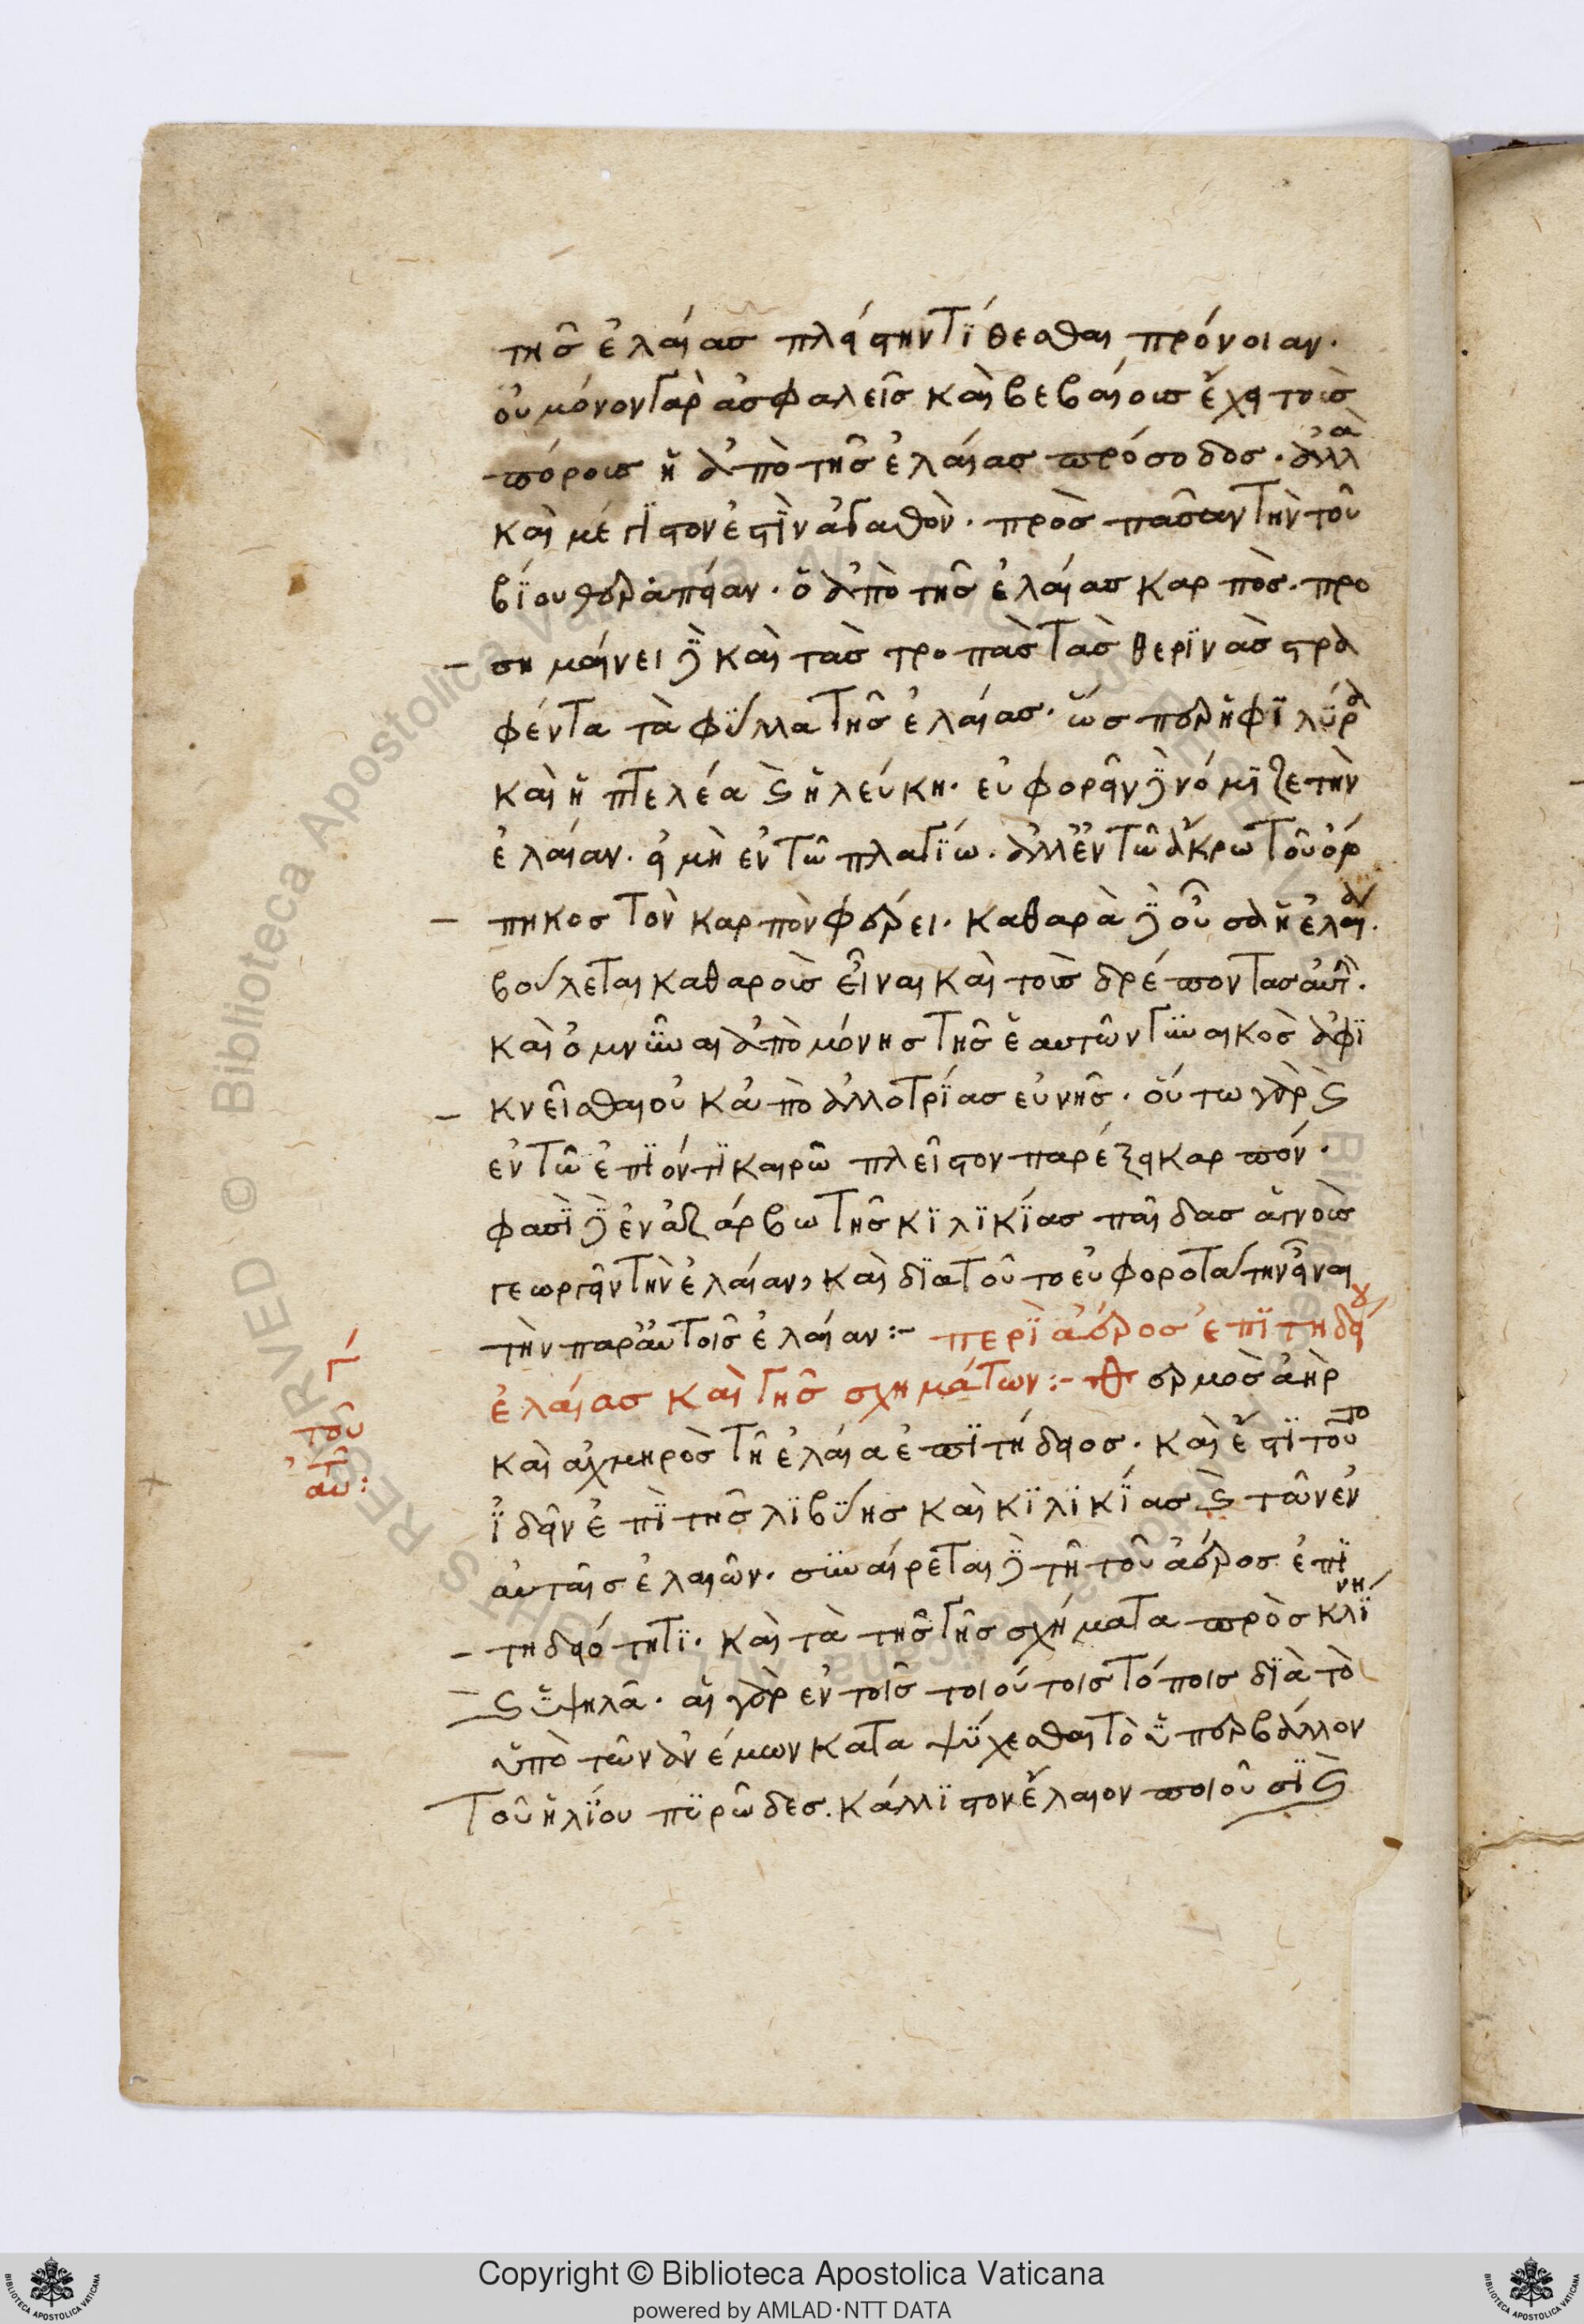 τῆς ἐλαίας πλείστην τίθεσθαι πρόνοιαν.
οὐ μόνον γὰρ ἀσφαλεῖς καὶ βεβαίους ἔχει τοὺς
πόρους ἡ ἀπὸ τῆς ἐλαίας πρόσοδος. ἀλλὰ
καὶ μέγιστον ἐστὶν ἀγαθὸν. πρὸς πᾶσαν τὴν τοῦ
βίου θεραπείαν. ὁ ἀπὸ τῆς ἐλαίας καρπὸς. προ
σημαίνει δὲ καὶ τὰς τροπὰς τὰς θερινὰς στρα
φέντα τὰ φύλλα τῆς ἐλαίας. ὥσπερ ἡ φιλύρα
καὶ ἡ πτελέα καὶ ἡ λεύκη. εὐφορεῖν δὲ νόμιζε τὴν
ἐλαίαν. εἰ μὴ ἐν τῷ πλαγίω. ἀλλ' ἐν τῶ ἄκρω τοῦ ὅρ
πηκος τὸν καρπὸν φέρει. καθαρὰ δὲ οὖσα ἡ ἐλαία.
βούλεται καθαροὺς εἶναι καὶ τοὺς δρέποντας αὐτὴν.
καὶ ὀμνύναι ἀπὸ μόνης τῆς ἑαυτῶν γυναικὸς ἀφι
κνεῖσθαι οὐκ ἀπὸ ἀλλοτρίας εὐνῆς. οὕτω γὰρ καὶ
ἐν τῶ ἐπιόντι καιρῶ πλεῖστον παρέξει καρπόν.
φασὶ δὲ ἐν ἀζάρβω τῆς κιλικίας παῖδας ἁγνοὺς
γεωργεῖν τὴν ἐλαίαν, καὶ διὰ τοῦτο εὐφοροτάτην εἶναι
τὴν παρ' αὐτοῖς ἐλαίαν:- περὶ ἀέρος ἐπιτηδείου
ἐλαίας καὶ γῆς σχημάτων:- Θερμὸς ἀὴρ
γ
τοῦ
αὐτ:
καὶ αὐχμηρὸς τῆ ἐλαία ἐπιτήδειος. καὶ ἔστι τοῦτο
ἰδεῖν ἐπὶ τῆς λιβύης καὶ κιλικίας καὶ τῶν ἐν
αὐταῖς ἐλαιῶν. συναίρεται δὲ τῆ τοῦ ἀέρος ἐπι
τηδειότητι. καὶ τὰ τῆς γῆς σχήματα πρὸς κλινῆ
καὶ ὑψηλὰ. αἱ γὰρ ἐν τοῖς τοιούτοις τόποις διὰ τὸ
ὑπὸ τῶν ἀνέμων καταψύχεσθαι τὸ ὑπερβάλλον
τοῦ ἡλίου πυρῶδες. κάλλιστον ἔλαιον ποιοῦσι καὶ
Copyright © Biblioteca Apostolica Vaticana
powered by AMLAD·NTT DATA